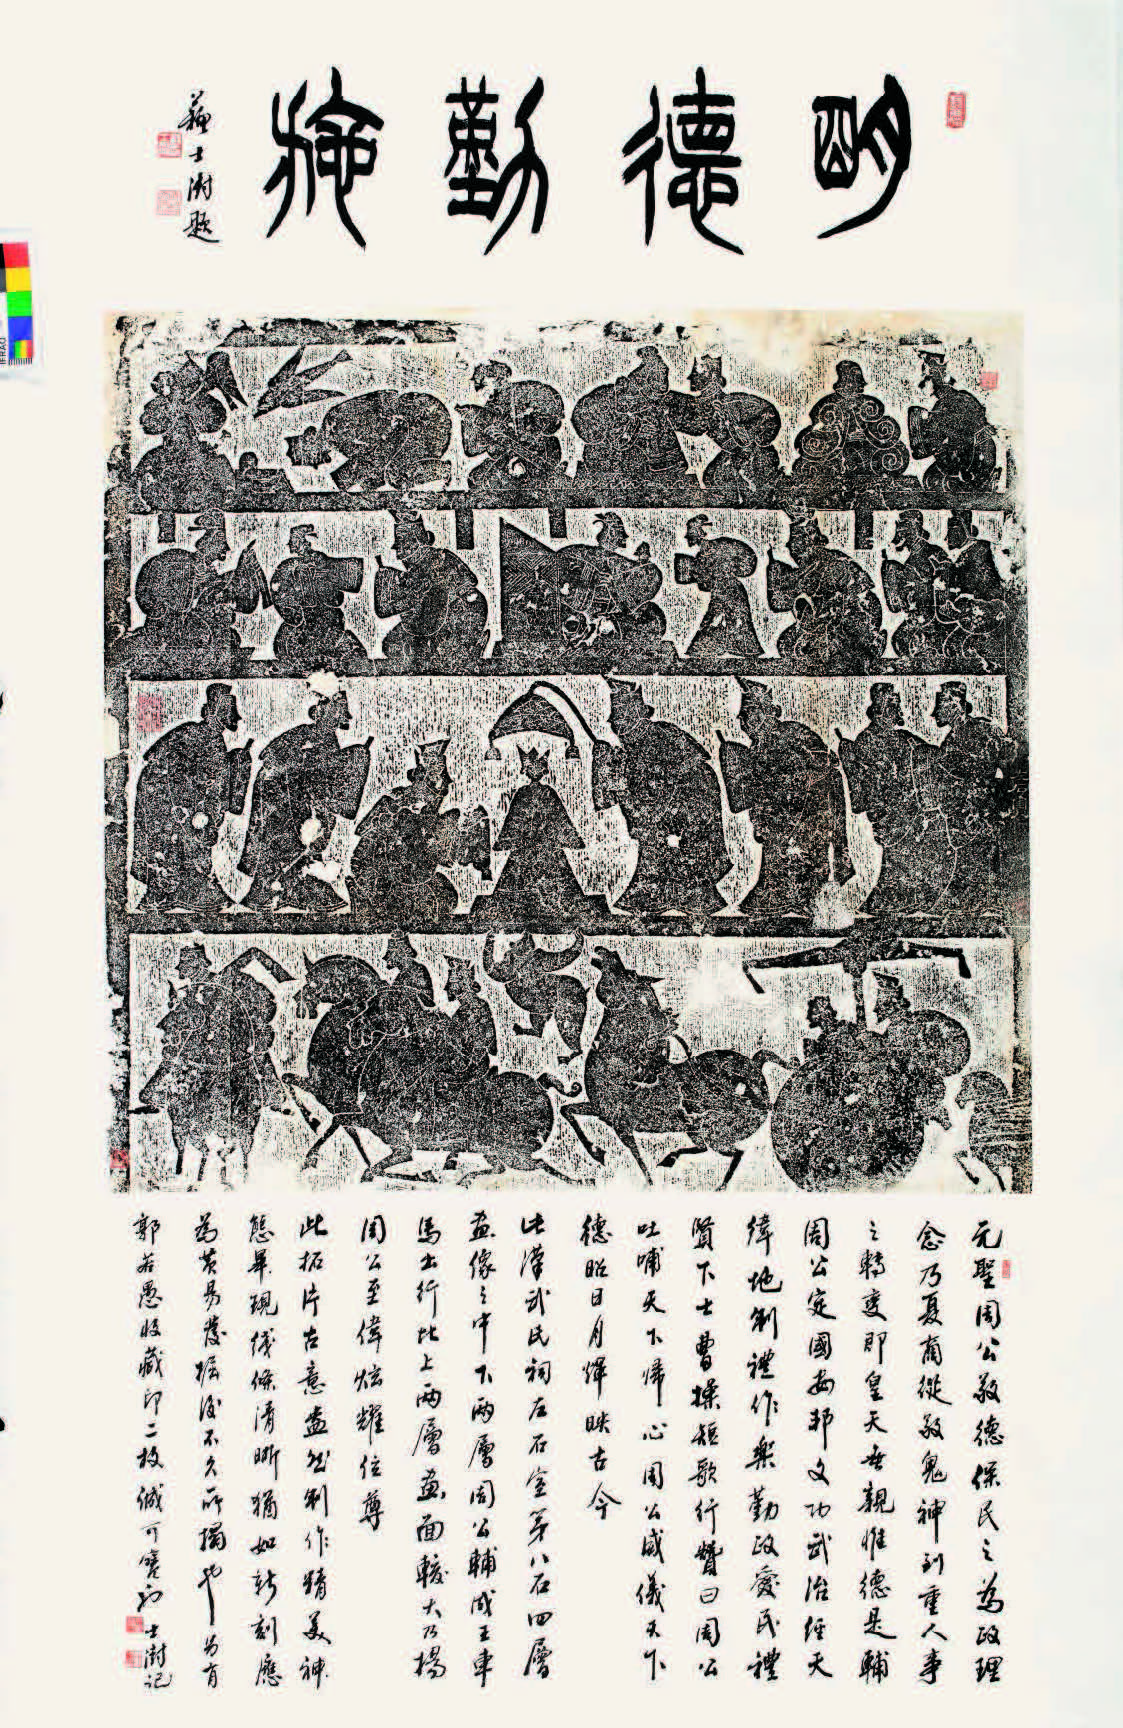 明德勤施
蘇士澍題
元聖周公敬德保民之為政理
念乃夏商從敬鬼神到重人事
之轉變即皇天無親惟德是輔
周公定國安邦文功武治經天
緯地制禮作樂勤政愛民禮
賢下士曹操短歌行贊曰周公
吐哺天下歸心周公威儀天下
德昭日月輝映古今
此漢武氏祠左石室第八石四層
畫像之中下兩層周公輔成王車
馬出行比上兩層畫面較大乃揚
周公至偉炫耀位尊
此拓片古意盎然制作精美神
態畢現綫條清晰猶如新刻應
為黃易發掘後不久所搨也另有
郭若愚收藏印二枚誠可寶
士澍記